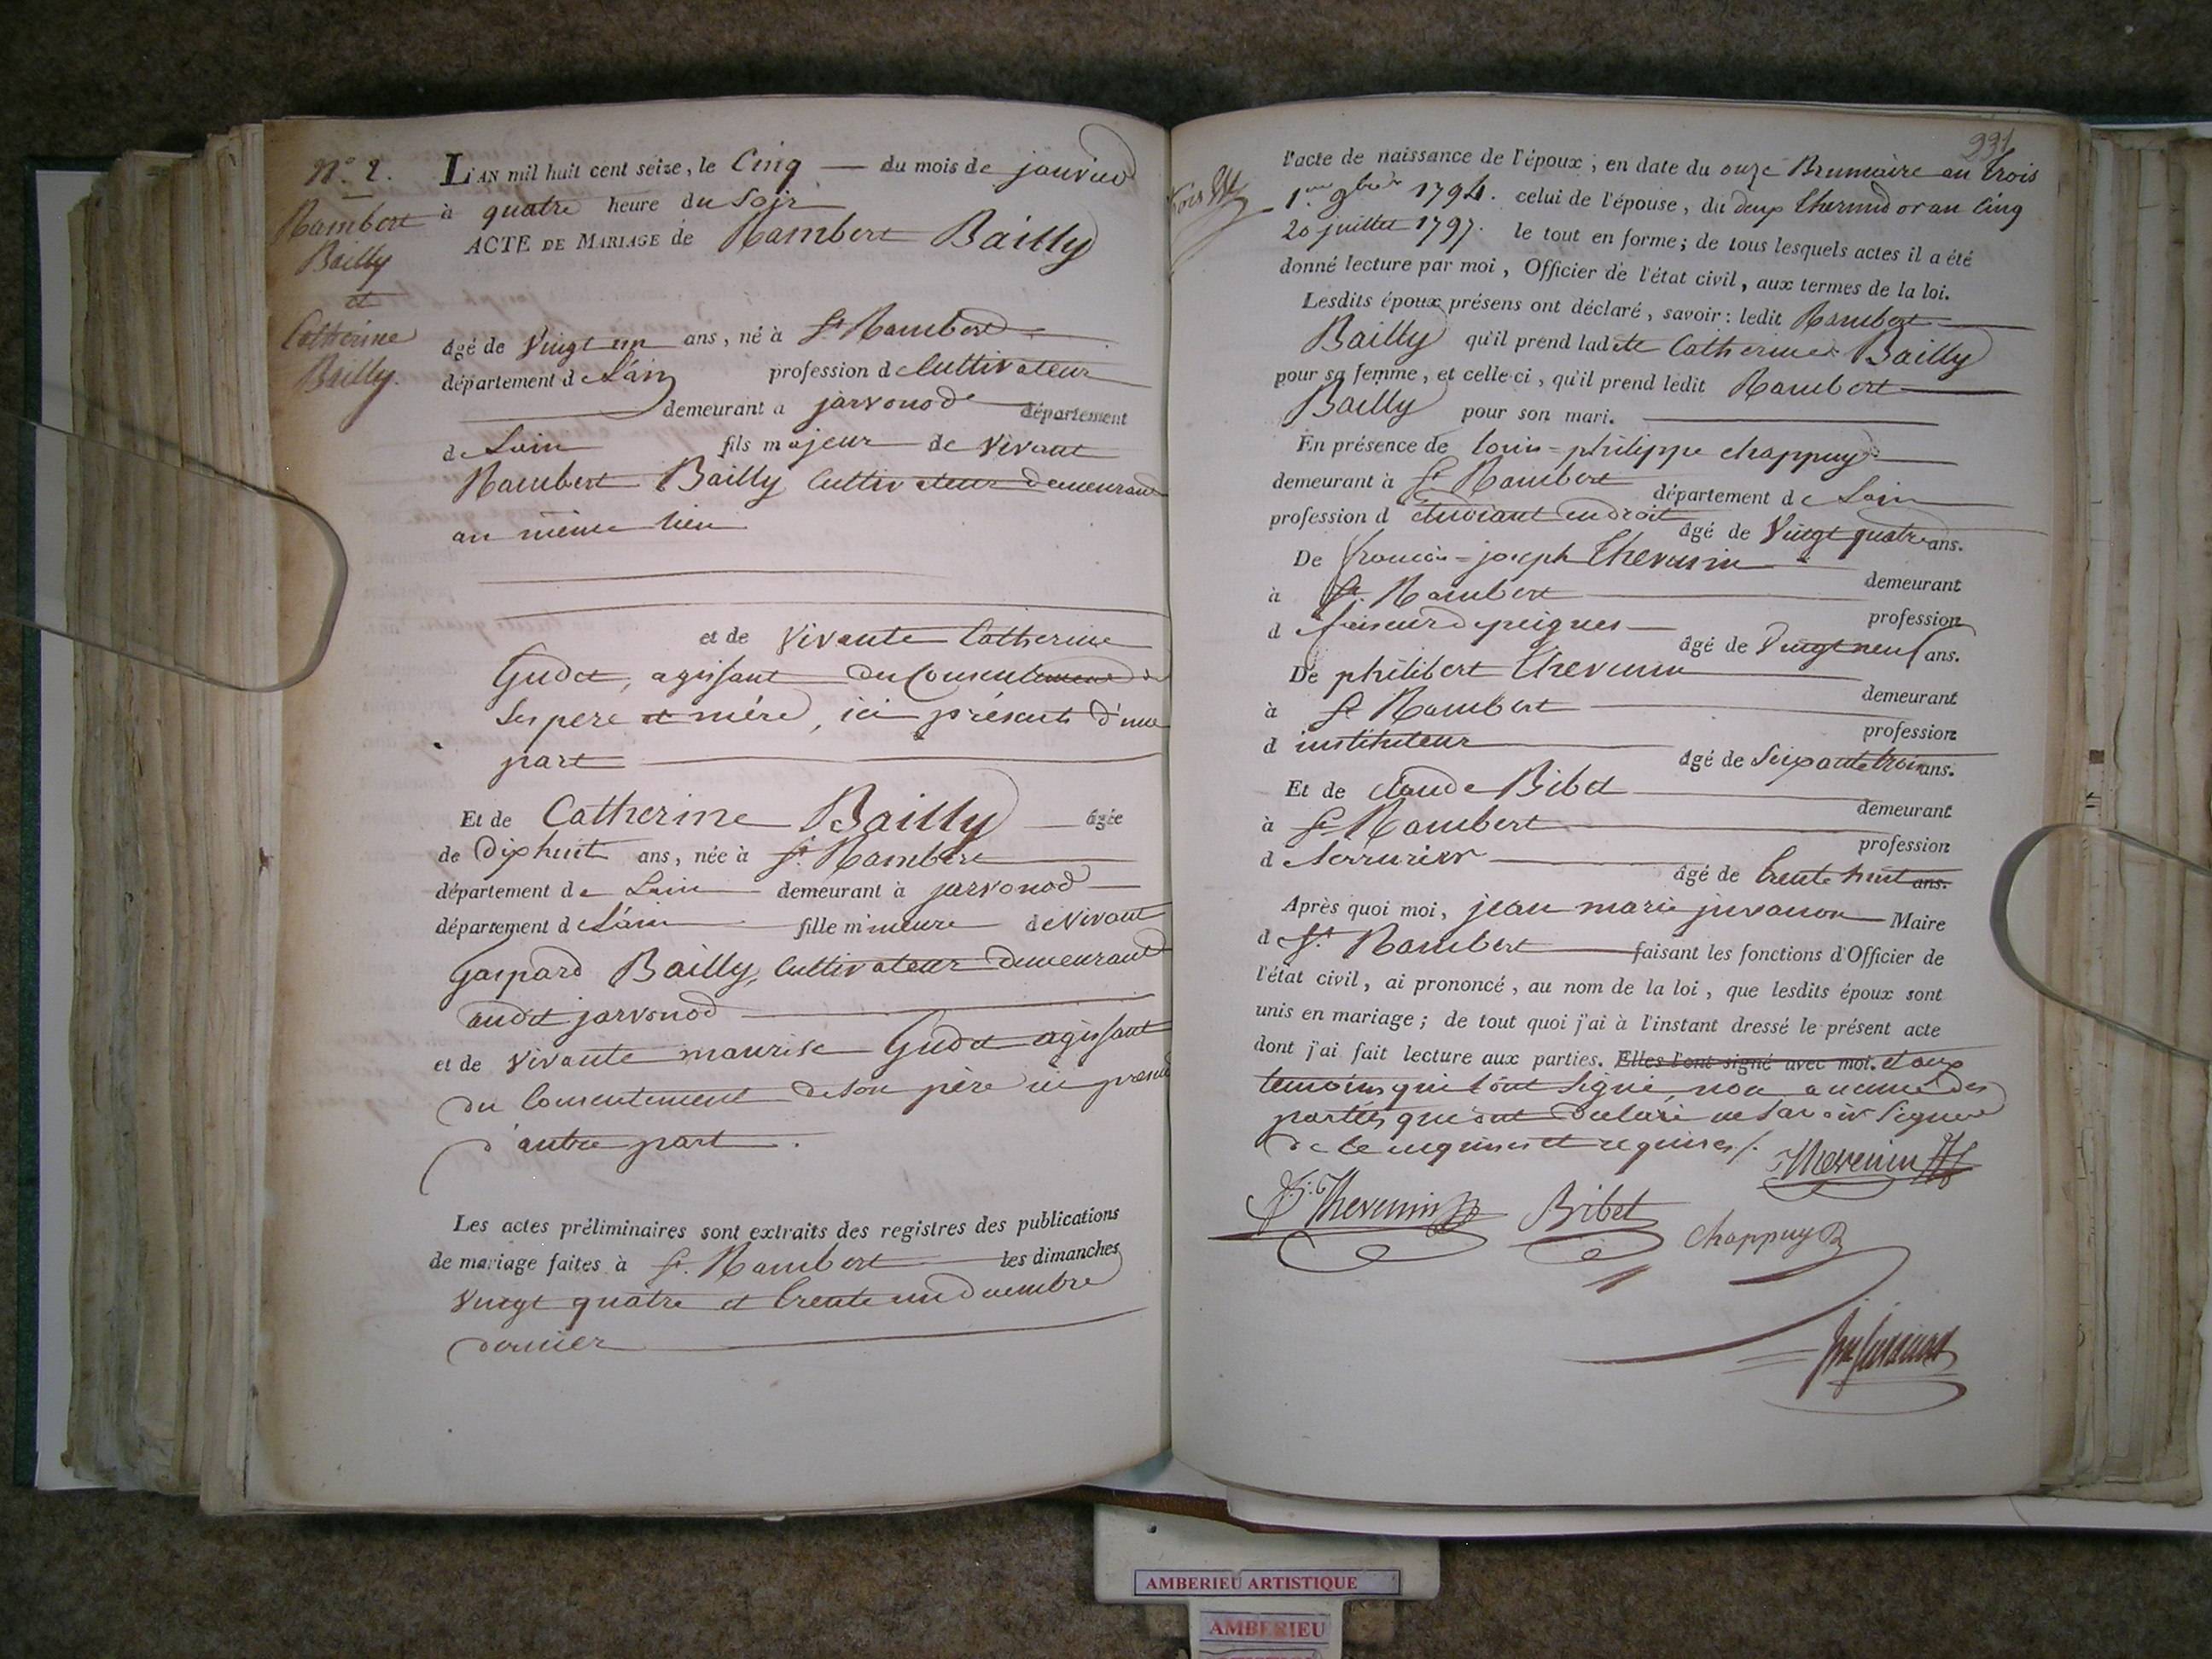 N.o 2.
Rambert
Bailly
et
Catherine
Bailly.
L'AN mil huit cent seize, le Cinq du mois de janvier
à quatre heure du Soir
ACTE DE MARIAGE de Rambert Bailly
âgé de Vingt un ans, né à St. Rambert
département de L'ain profession de Cultivateur
demeurant a jarvonod département
de Lain fils majeur de vivant
Rambert Bailly, Cultivateur demeurant
au même lieu
et de vivante Catherine
Gudet, agissant du Consentement de
Ses pere et mére, ici présents d'une
part
Et de Catherine Bailly âgée
de dix huit ans, née à St. Rambert
département de Lain demeurant à jarvonod
département de L'ain fille mineure de Vivant
Gaspard Bailly, Cultivateur demeurant
audit jarvonod
et de vivante maurise Gudet agissant
du Consentement de son père ici présent
d'autre part.
Les actes préliminaires sont extraits des registres des publications
de mariage faites à St. Rambert les dimanches
vingt quatre et trente un decembre
dernier
231
l'acte de naissance de l'époux; en date du onze Brumaire an trois
1.er 9bre 1794. celui de l'épouse, du deux thermidor an Cinq
20 juillet 1797. le tout en forme; de tous lesquels actes il a été
donné lecture par moi, Officier de l'état civil, aux termes de la loi.
Lesdits époux présens ont déclaré, savoir: ledit Rambert
Bailly qu'il prend ladite Catherine Bailly
pour sa femme, et celle-ci, qu'il prend ledit Rambert
Bailly pour son mari.
En présence de louis=philippe chappuy
demeurant à St. Rambert département de Lain
profession d'etudiant en droit âgé de Vingt quatre ans.
De françois=joseph thevenin demeurant
à St. Rambert profession
de faiseur de peignes âgé de Vingt neuf ans.
De philibert thevenin demeurant
à St Rambert profession
d'instituteur âgé de Soixante trois ans.
Et de claude Bibet demeurant
à St Rambert profession
de Serrurier âgé de trente huit ans.
Après quoi moi, jean marie juvanon Maire
de St. Rambert faisant les fonctions d'Officier de
l'état civil, ai prononcé, au nom de la loi, que lesdits époux sont
unis en mariage; de tout quoi j'ai à l'instant dressé le présent acte
dont j'ai fait lecture aux parties. Elles l'ont signé avec moi. et aux
temoins qui l'ont signé, non aucune des
parties qui ont declaré ne savoir signer
de ce enquises et requises ./.
Thevenin
F: j: Thevenin Bibet Chappuy
AMBERIEU ARTISTIQUE
AMBERIEU